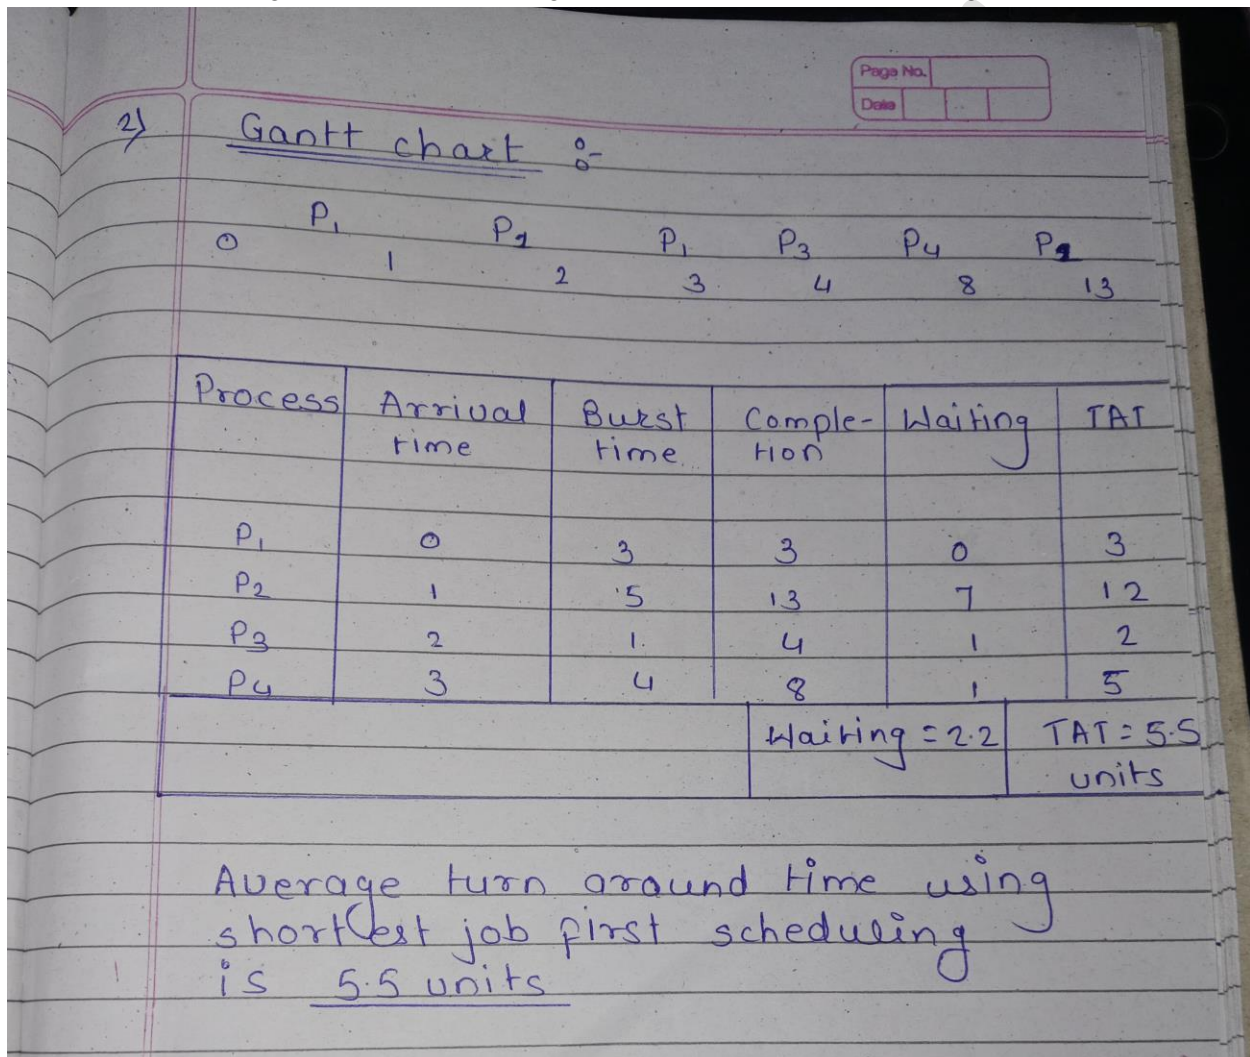 Page No.
Date
2) Gantt chart :-
P1 P2 P1 P3 P4 P2
0 1 2 3 4 8 13
Process Arrival time Burst time Comple-tion Waiting TAT
P1 0 3 3 0 3
P2 1 5 13 7 12
P3 2 1 4 1 2
P4 3 4 8 1 5
Waiting = 2.2 TAT = 5.5
units
Average turn around time using
shortest job first scheduling
is 5.5 units